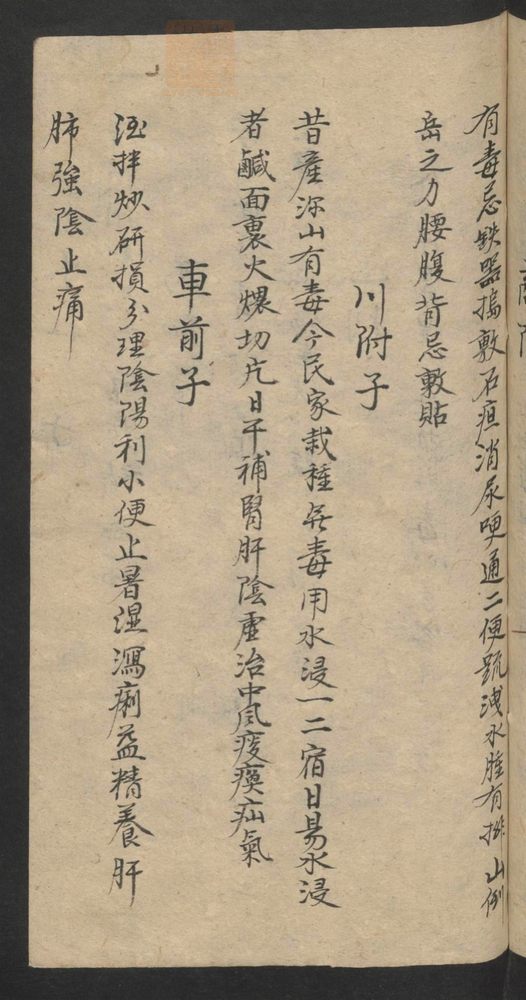 有毒忌鉄器搗敷石疽消尿哽通二便疏洩水腫有排山倒
岳之力腰腹背忌敷貼
川附子
昔產深山有毒今民家栽種無毒用水浸一二宿日易水浸
者鹹面裹火煨切片日干補腎肝陰虛治中風痰瘓疝氣
車前子
酒拌炒研損分理陰陽利小便止暑湿瀉痢益精養肝
肺強陰止痛